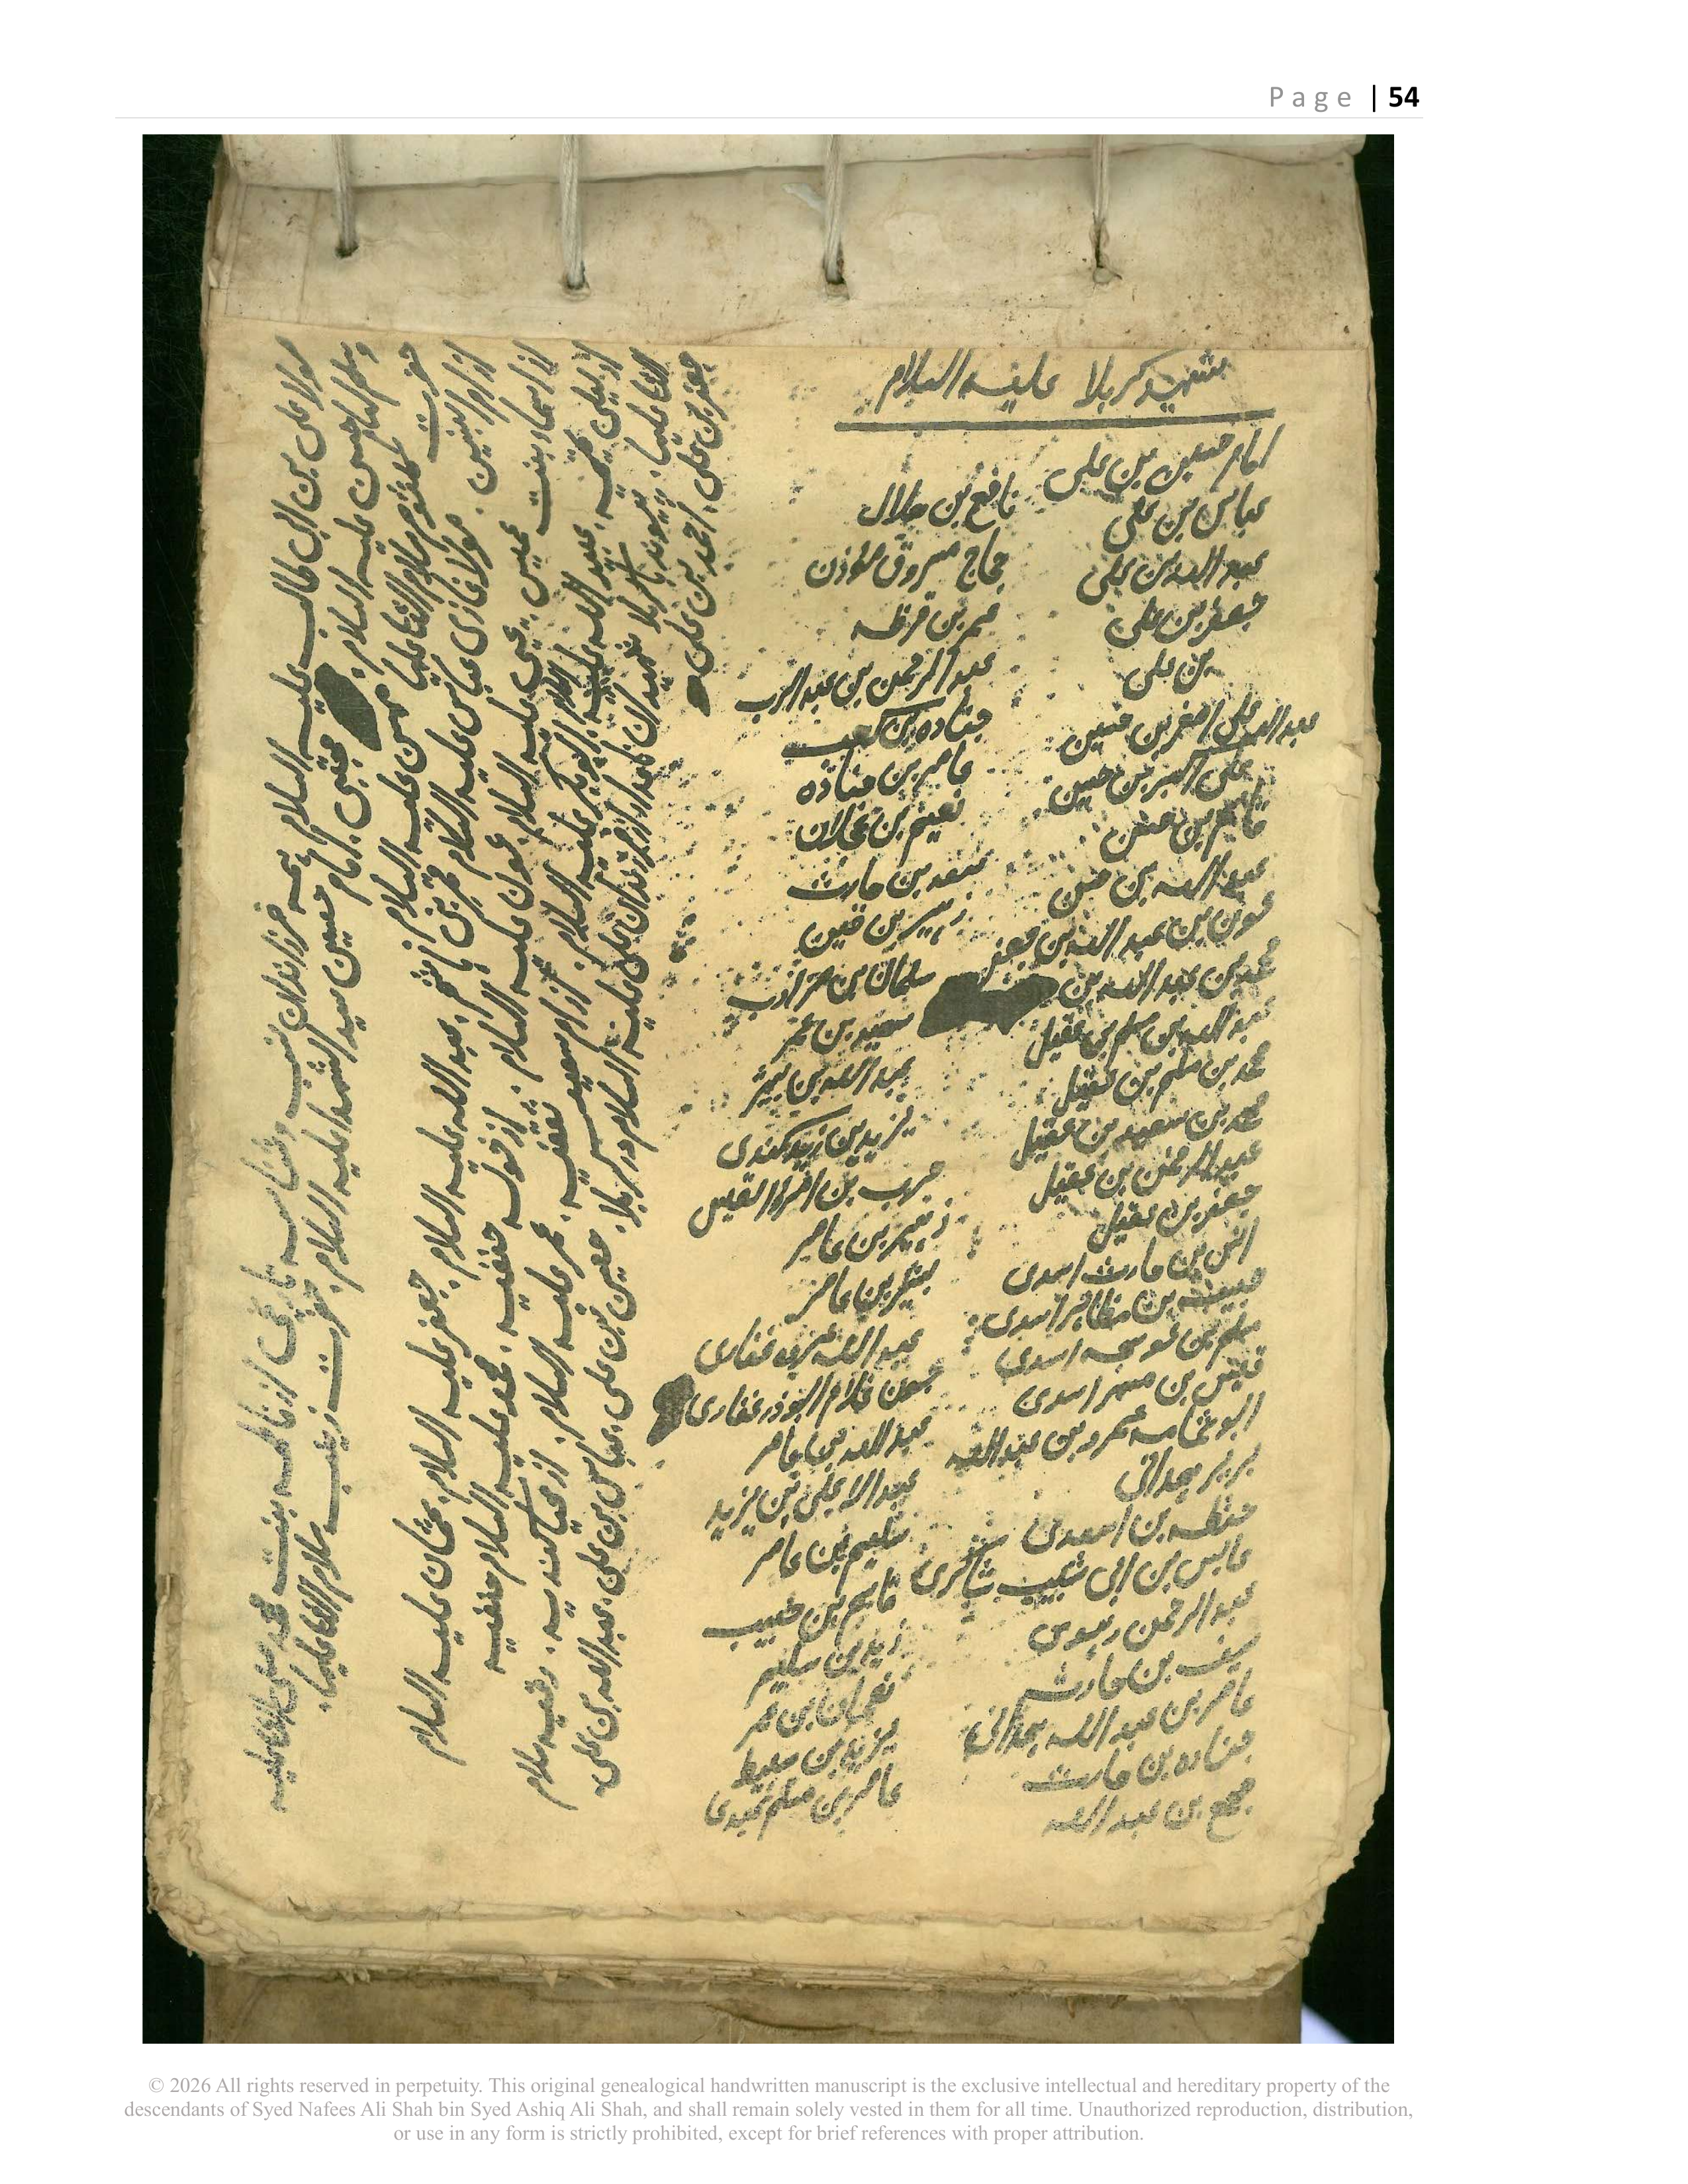 Page | 54
شهید کربلا علیه السلام
امام حسین بن علی
عباس بن علی
عبداللہ بن علی
جعفر بن علی
بن علی
عبداللہ علی اصغر بن حسین
علی اکبر بن حسین
قاسم بن حسن
عبداللہ بن حسن
عون بن عبداللہ بن جعفر
محمد بن عبداللہ بن
عبداللہ بن مسلم بن عقیل
محمد بن مسلم بن عقیل
محمد بن سعید بن عقیل
عبدالرحمن بن عقیل
جعفر بن عقیل
انس بن حارث اسدی
حبیب بن مظاہر اسدی
مسلم بن عوسجہ اسدی
قیس بن مسہر اسدی
ابو ثمامہ عمرو بن عبداللہ
بریر ہمدانی
حنظلہ بن اسعدی
عابس بن ابی شبیب شاکری
عبدالرحمن
سیف بن حارث
عامر بن عبداللہ ہمدانی
جنادہ بن حارث
مجمع بن عبداللہ
نافع بن ہلال
حجاج مسروق مؤذن
عمر بن قرظہ
عبدالرحمن بن عبدالرب
جنادہ بن کعب
عامر بن جنادہ
نعیم بن عجلان
سعد بن حارث
زہیر بن قین
سلمان بن مضارب
سعید بن عمر
عبداللہ بن بشر
یزید بن زید کندی
حرب بن امرؤ القیس
زہیر بن عامر
بشیر بن عامر
عبداللہ عروہ غفاری
جون غلام ابوذر غفاری
عبداللہ بن عامر
عبداللہ علی بن یزید
سلیم بن عامر
قاسم بن حبیب
زید بن سلیم
نعمان بن عمر
یزید بن
عامر بن مسلم عبدی
مولا علی بن ابی طالب علیہ السلام فرزندان نسب از فاطمہ بنت محمد صلی اللہ علیہ
وسلم امام حسن علیہ السلام مجتبی. امام حسین سید الشہدا علیہ السلام. حضرت زینب سلام اللہ علیہا.
حضرت کلثوم سلام اللہ علیہا محسن علیہ السلام
از ام البنین. مولا غازی عباس علیہ السلام قمر بنی ہاشم. عبداللہ علیہ السلام. جعفر علیہ السلام. عثمان علیہ السلام
از اسماء بنت عمیس. یحیی علیہ السلام. عون علیہ السلام. از خولہ حنفیہ. محمد علیہ السلام حنفیہ
از لیلی. عبید اللہ علیہ السلام ابوبکر علیہ السلام. از ام سعید ثقفیہ. عمر علیہ السلام. از محیا کندیہ. رقیہ سلام
اللہ علیہا. کربلا شہیدان نامدار از فرزندان علی علیہ السلام در کربلا. حسین بن علی. عباس بن علی. عبداللہ بن علی.
جعفر بن علی. احمد بن علی
© 2026 All rights reserved in perpetuity. This original genealogical handwritten manuscript is the exclusive intellectual and hereditary property of the
descendants of Syed Nafees Ali Shah bin Syed Ashiq Ali Shah, and shall remain solely vested in them for all time. Unauthorized reproduction, distribution,
or use in any form is strictly prohibited, except for brief references with proper attribution.